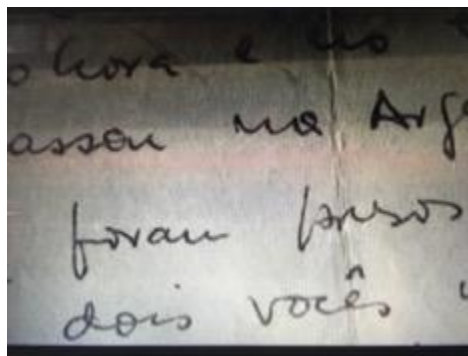 hora e no
assou na Arg
foram presos
dois vocês